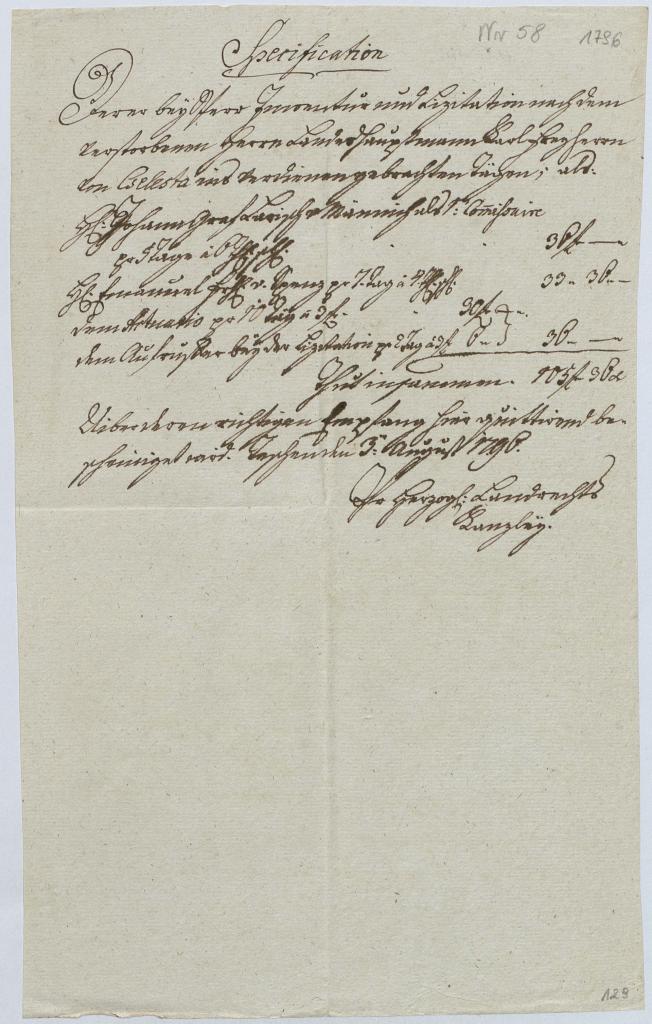 Nr 58 1796
Specification
Derer bey der Inventur und Lizitation nach dem
verstorbenen Herrn Landeshauptmann Karl Freyherrn
von Cselesta ins Verdienen gebrachten Tägen; als:
H: Johann Graf Larisch v Männich als 1: Comissaire
pr 5 Tage à 36 f —
H: Emanuel v. Spenz pr 7. Tag à 4 33 " 36 "
dem Actuario pr 10 Täg à 3 f. 30 f
dem Ausrufer bey der Lizitation pr 2 Tag à 3 f 6 " 36 " —
Thut insammen. 105 f 36 x
Uiber deren richtigen Empfang hier quittirend be-
scheiniget wird. Teschen den 3: August 1796.
Pr Herzogl: Landrechts
Kanzley.
129